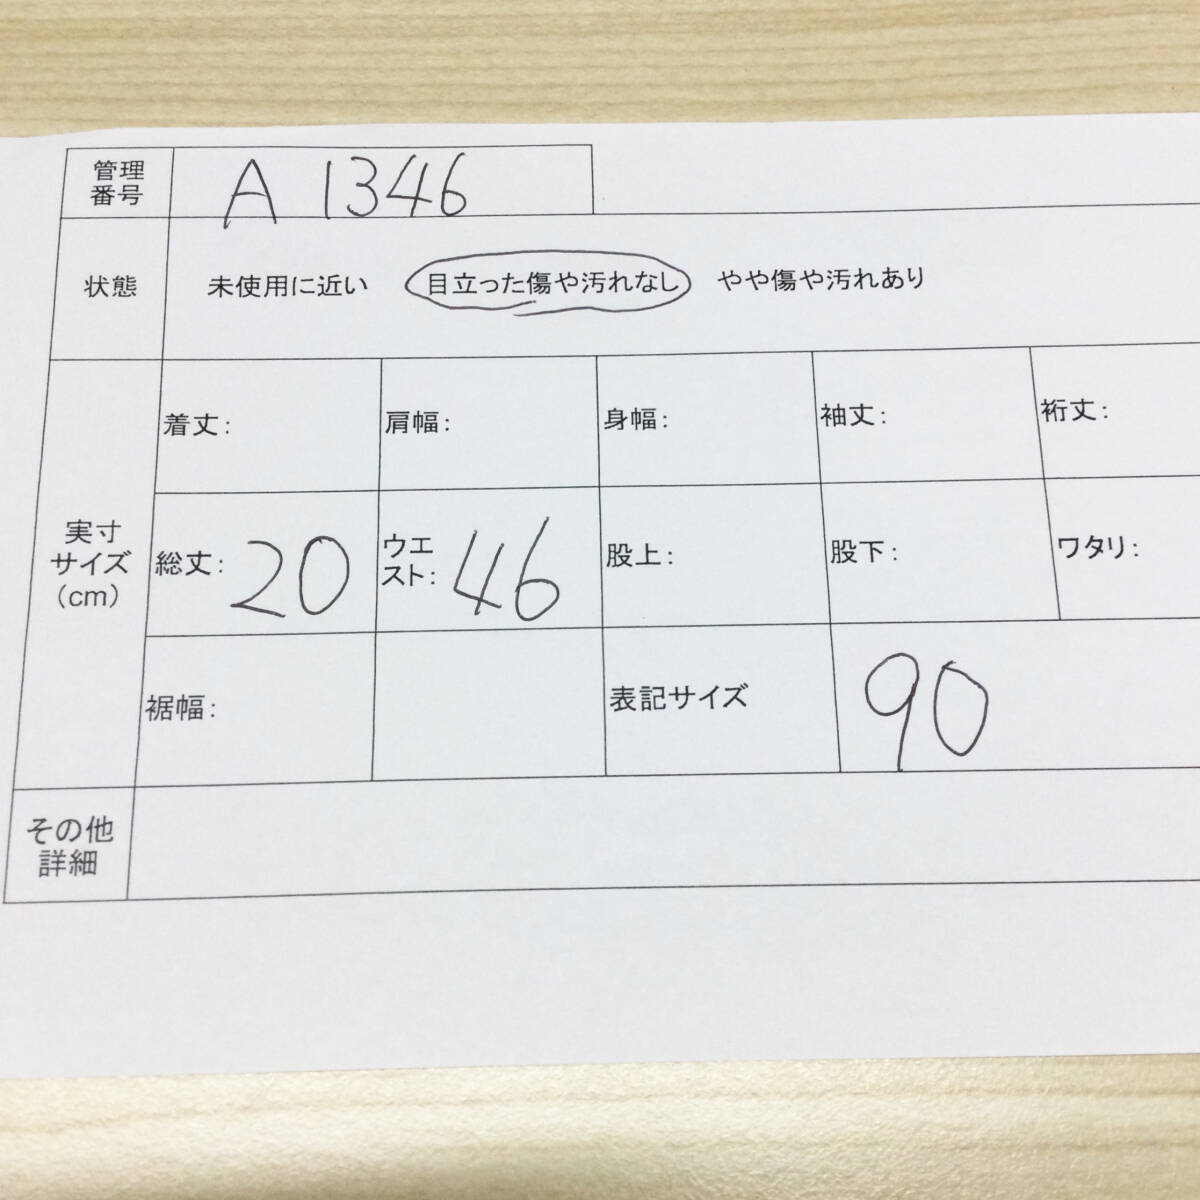 管理
番号
A 1346
状態
未使用に近い 目立った傷や汚れなし やや傷や汚れあり
実寸
サイズ
(cm)
着丈:
肩幅:
身幅:
袖丈:
裄丈:
総丈: 20
ウエ
スト: 46
股上:
股下:
ワタリ:
裾幅:
表記サイズ
90
その他
詳細